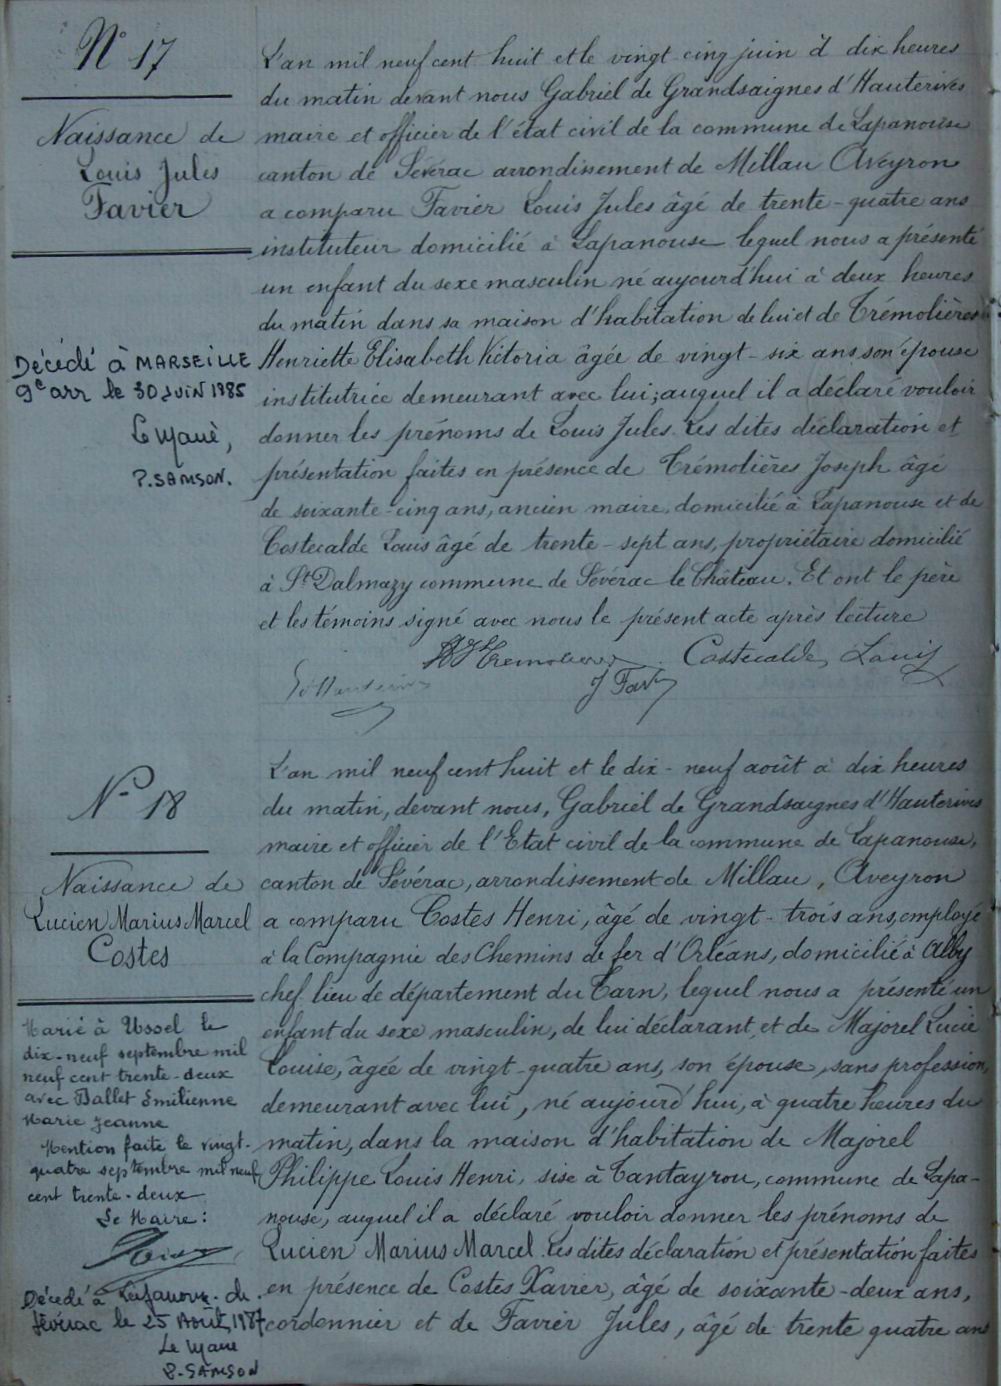 N° 17
Naissance de
Louis Jules
Favier
Décédé à MARSEILLE
9e arr le 30 JUIN 1985
Le Maire,
P. SAMSON.
L'an mil neuf cent huit et le vingt cinq juin à dix heures
du matin devant nous Gabriel de Grandsaignes d'Hauterives
maire et officier de l'état civil de la commune de Lapanouse
canton de Sévérac arrondissement de Millau Aveyron
a comparu Favier Louis Jules âgé de trente-quatre ans
instituteur domicilié à Lapanouse lequel nous a présenté
un enfant du sexe masculin né aujourd'hui à deux heures
du matin dans sa maison d'habitation de lui et de Trémolières
Henriette Elisabeth Victoria âgée de vingt-six ans son épouse
institutrice demeurant avec lui; auquel il a déclaré vouloir
donner les prénoms de Louis Jules. Les dites déclaration et
présentation faites en présence de Trémolières Joseph âgé
de soixante-cinq ans, ancien maire, domicilié à Lapanouse et de
Costecalde Louis âgé de trente-sept ans, propriétaire domicilié
à St Dalmazy commune de Sévérac le Château. Et ont le père
et les témoins signé avec nous le présent acte après lecture
Tremolieres Costecalde Louis
d'Hauterives J Favier
N° 18
Naissance de
Lucien Marius Marcel
Costes
Marié à Ussel le
dix-neuf septembre mil
neuf cent trente-deux
avec Ballet Emilienne
Marie Jeanne
Mention faite le vingt-
quatre septembre mil neuf
cent trente-deux
Le Maire:
Décédé à Lapanouse-de-
Sévérac le 25 Août 1987
Le Maire
P. SAMSON
L'an mil neuf cent huit et le dix-neuf août à dix heures
du matin, devant nous, Gabriel de Grandsaignes d'Hauterives
maire et officier de l'Etat civil de la commune de Lapanouse,
canton de Sévérac, arrondissement de Millau, Aveyron
a comparu Costes Henri, âgé de vingt-trois ans, employé
à la Compagnie des Chemins de fer d'Orléans, domicilié à Alby
chef lieu de département du Tarn, lequel nous a présenté un
enfant du sexe masculin, de lui déclarant, et de Majorel Lucie
Louise, âgée de vingt-quatre ans, son épouse, sans profession,
demeurant avec lui, né aujourd'hui, à quatre heures du
matin, dans la maison d'habitation de Majorel
Philippe Louis Henri, sise à Tantayrou, commune de Lapa-
nouse, auquel il a déclaré vouloir donner les prénoms de
Lucien Marius Marcel. Les dites déclaration et présentation faites
en présence de Costes Xavier, âgé de soixante-deux ans,
cordonnier et de Favier Jules, âgé de trente quatre ans